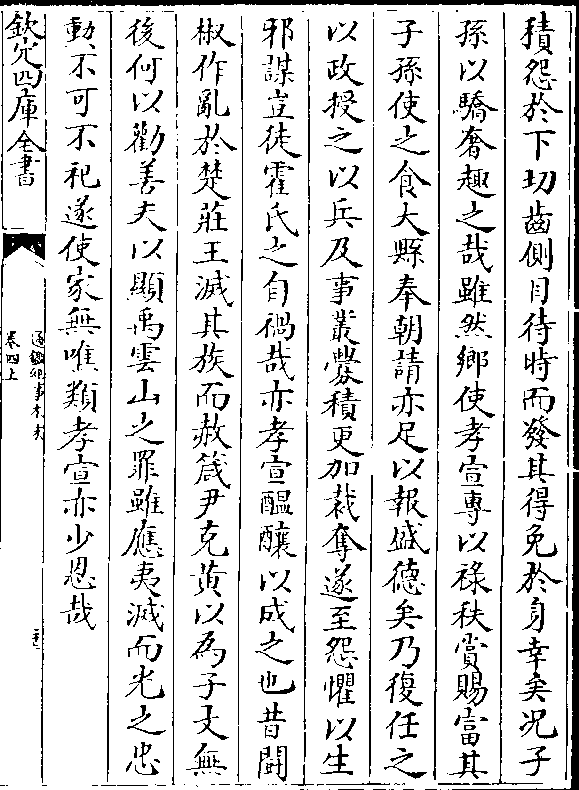 積怨於下切齒側目待時而發其得免於身幸矣况子
孫以驕奢趣之哉雖然鄉使孝宣專以禄秩賞賜富其
子孫使之食大縣奉朝請亦足以報盛德矣乃復任之
以政授之以兵及事叢釁積更加裁奪遂至怨懼以生
邪謀豈徒霍氏之自禍哉亦孝宣醖釀以成之也昔鬭
椒作亂於楚莊王滅其族而赦箴尹克黄以為子文無
後何以勸善夫以顯禹雲山之罪雖應夷滅而光之忠
勳不可不祀遂使家無唯類孝宣亦少恩哉
欽定四庫全書
通鑑紀事本末
卷四上